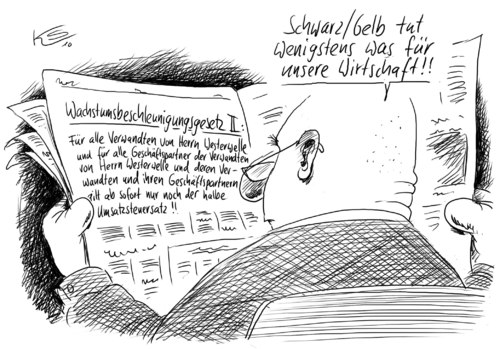 KS
10
Schwarz/Gelb tut
wenigstens was für
unsere Wirtschaft!!
Wachstumsbeschleunigungsgesetz II:
Für alle Verwandten von Herrn Westerwelle
und für alle Geschäftspartner der Verwandten
von Herrn Westerwelle und deren Ver-
wandten und ihren Geschäftspartnern
gilt ab sofort nur noch der halbe
Umsatzsteuersatz!!